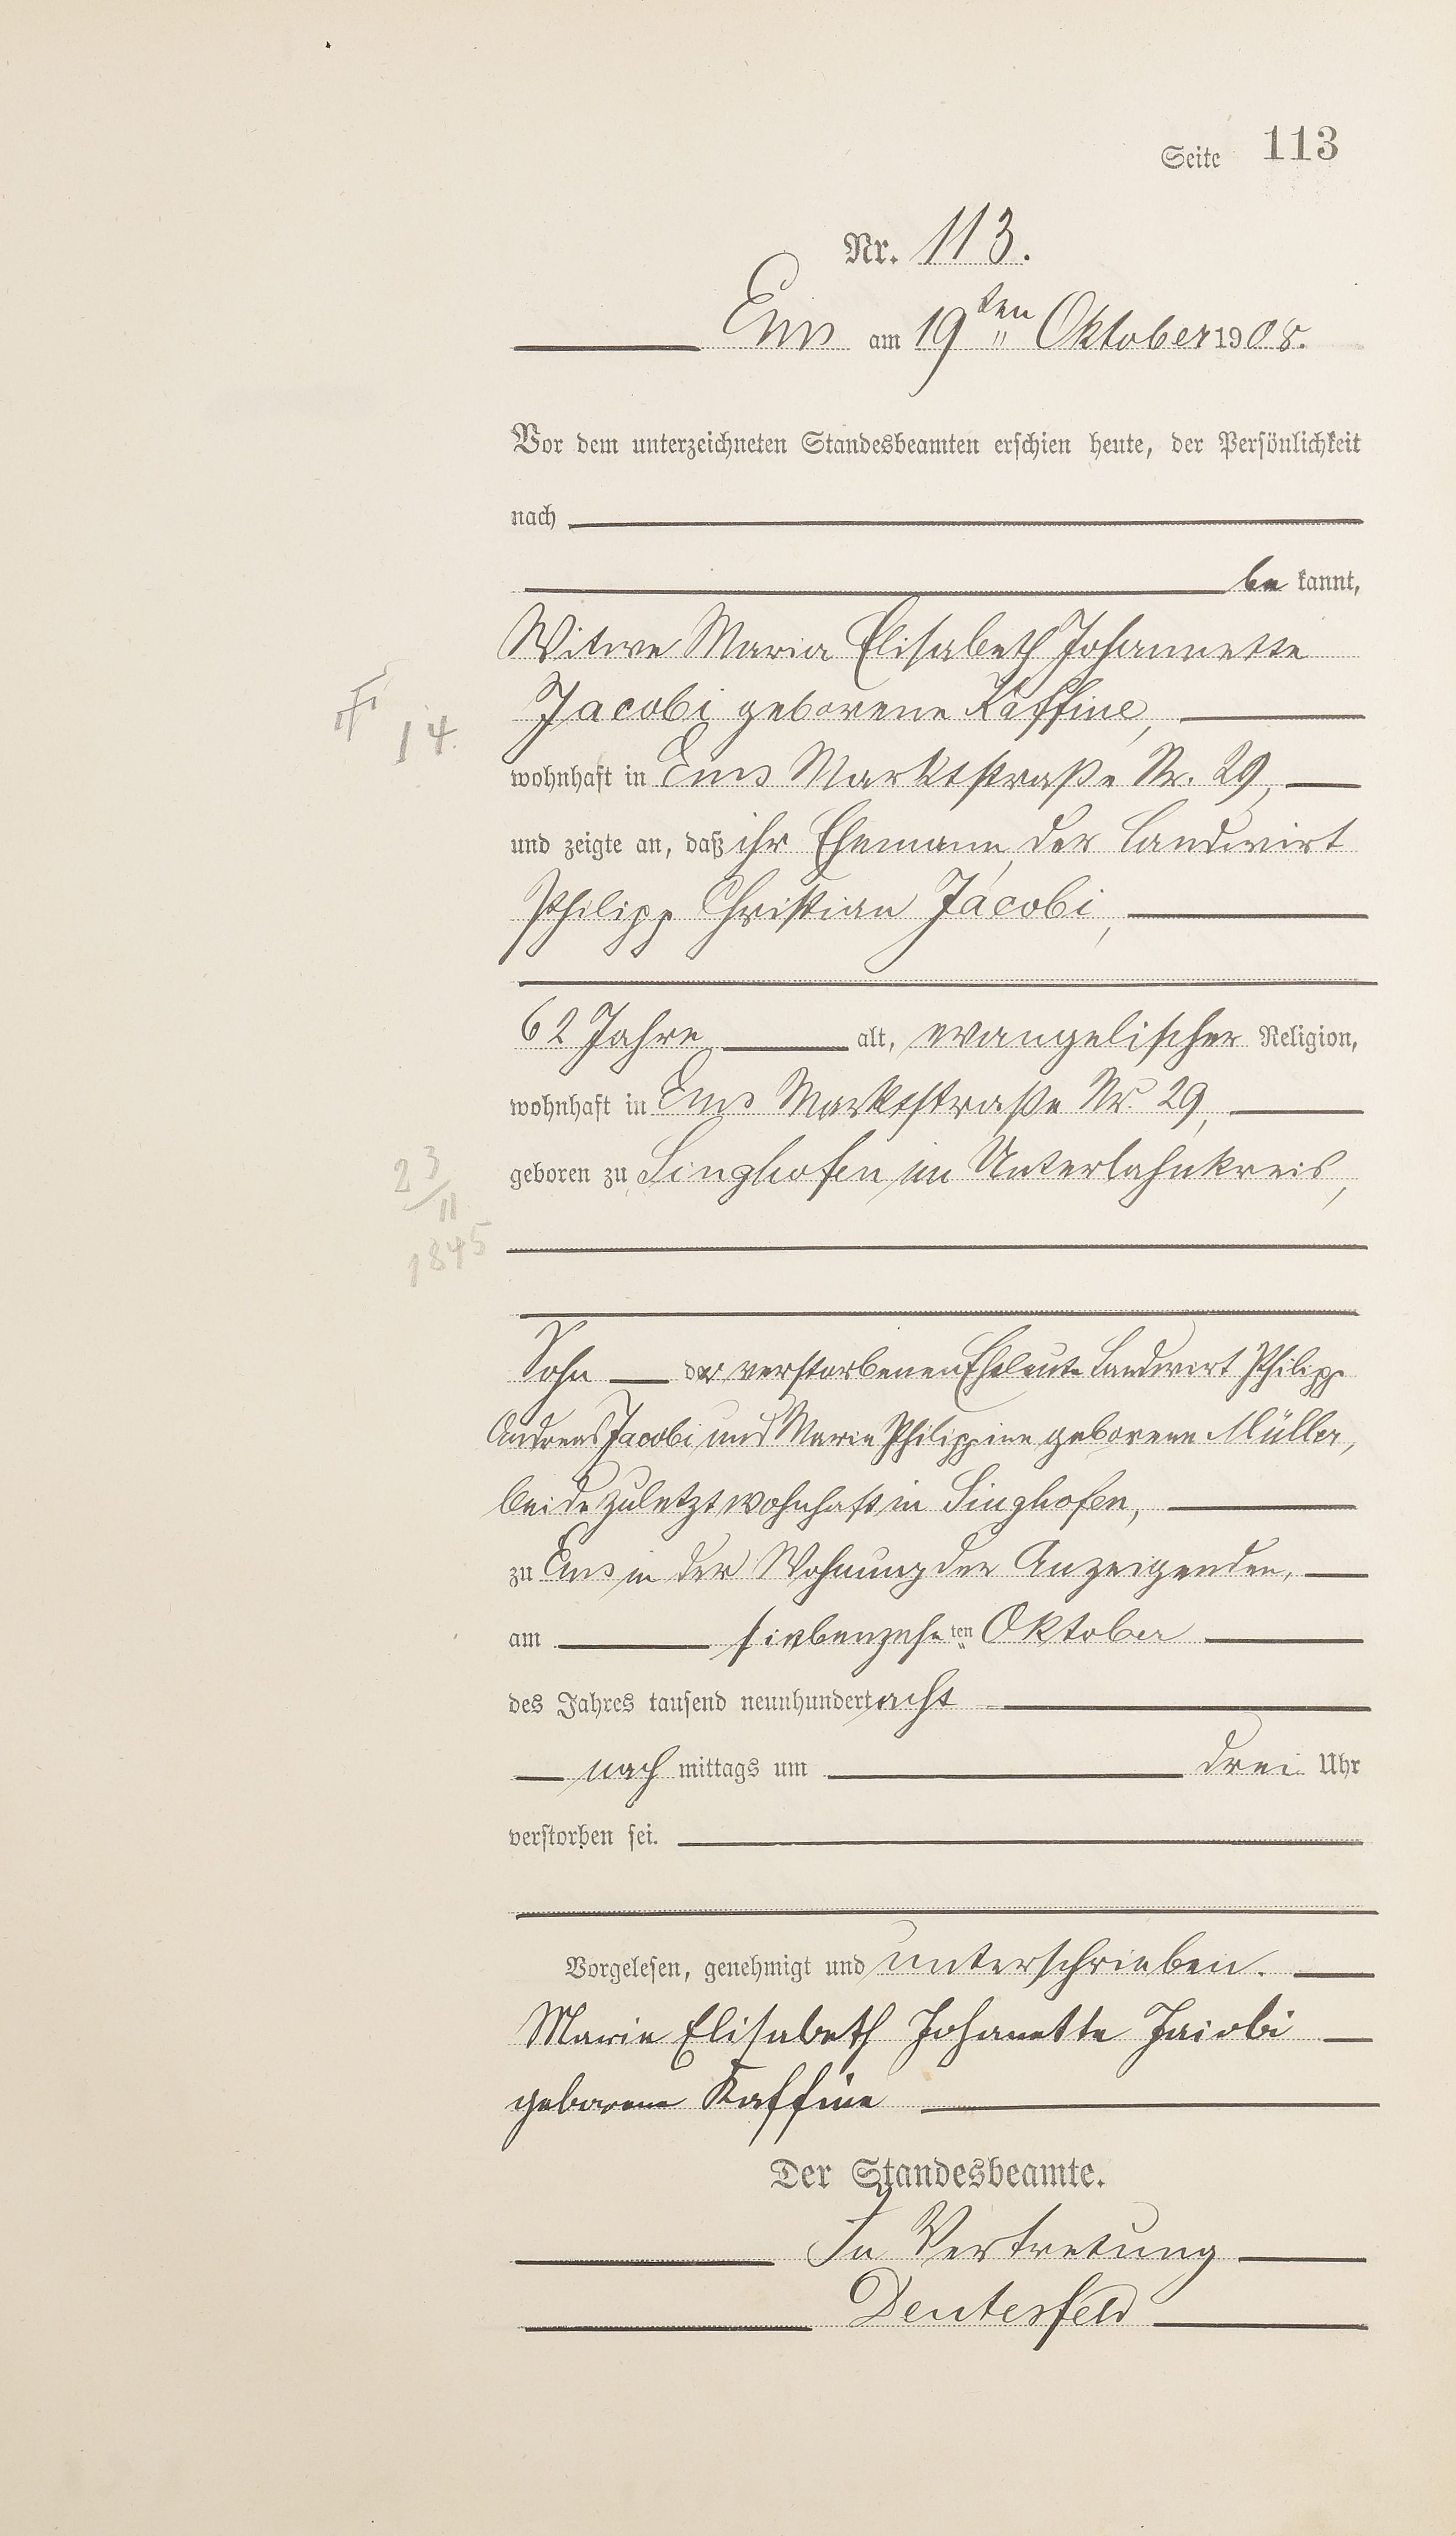 Seite 113
Nr. 113.
Ems am 19ten Oktober 1908.
Vor dem unterzeichneten Standesbeamten erschien heute, der Persönlichkeit
nach
be kannt,
Witwe Maria Elisabeth Johannette
Jacobi geborene Kaffine,
14.
wohnhaft in Ems Marktstraße Nr. 29,
und zeigte an, daß ihr Ehemann, der Landwirt
Philipp Christian Jacobi,
62 Jahre alt, evangelischer Religion,
wohnhaft in Ems Marktstraße Nr. 29,
geboren zu Singhofen im Unterlahnkreis,
23/11
1845
Sohn der verstorbenen Eheleute Landwirt Philipp
Andreas Jacobi und Maria Philippine geborene Müller,
beide zuletzt wohnhaft in Singhofen,
zu Ems in der Wohnung der Anzeigenden,
am siebenzehnten Oktober
des Jahres tausend neunhundert acht
nach mittags um drei Uhr
verstorben sei.
Vorgelesen, genehmigt und unterschrieben.
Marie Elisabeth Johanette Jacobi
geborene Kaffine
Der Standesbeamte.
In Vertretung
Deutesfeld